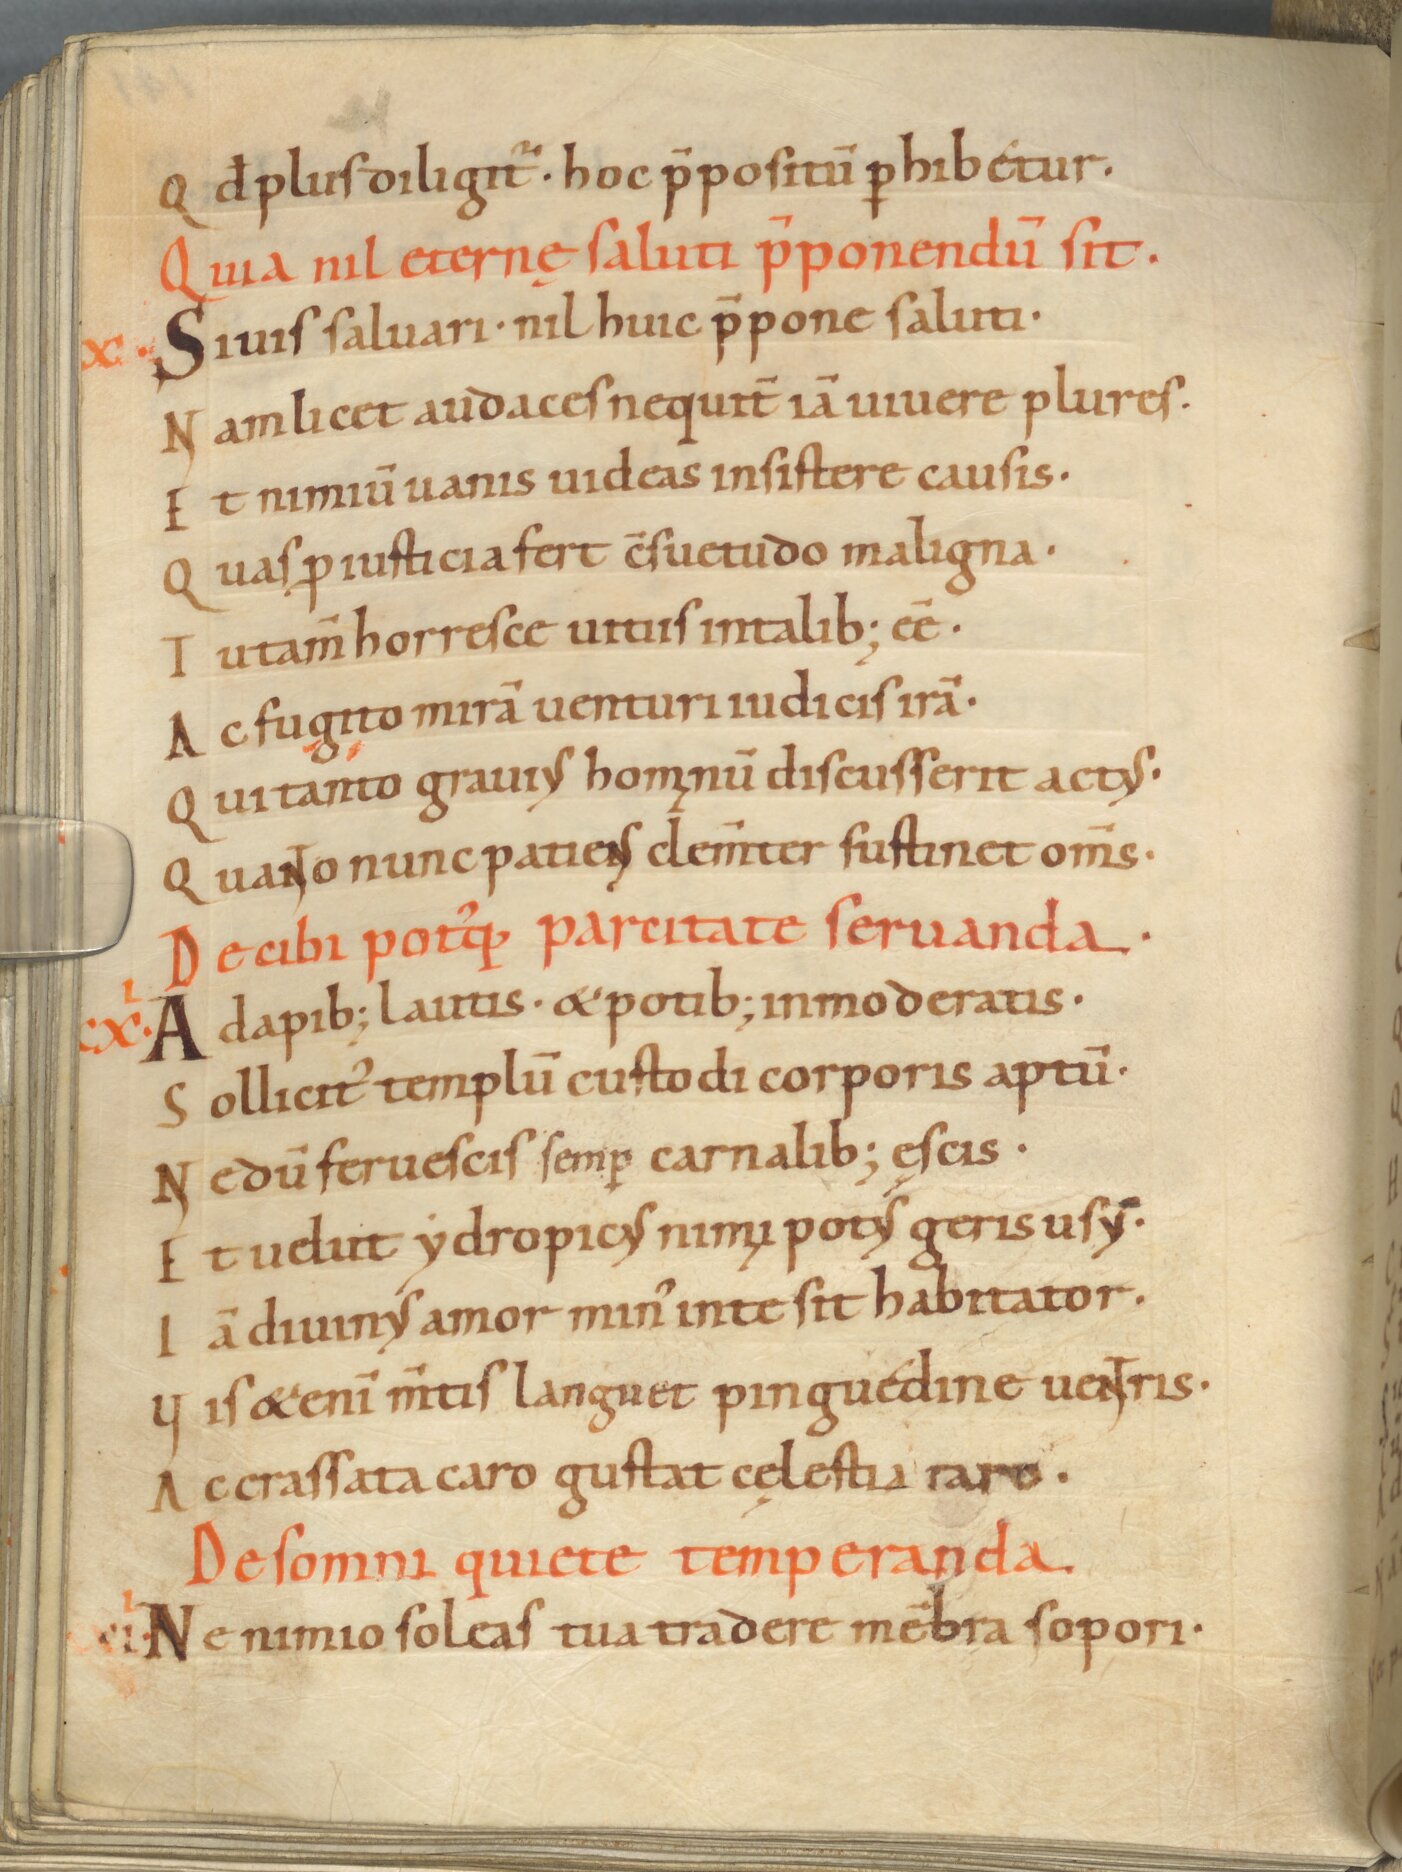 Qđ plus diligit̅᷑· hoc p̄positū ꝑhibétur.
Quia nil eternę saluti p̄ponendū sit.
x· Si uis saluari· nil huic p̄pone saluti·
Nam licet audaces nequit̄ iā uiuere plures.
Et nimiū uanis uideas insistere causis·
Quas ꝓ iusticia fert c̄suetudo maligna·
Tu tam̄ horresce uitiis in talib; eē·
Ac fugito mirā uenturi iudicis irā·
Qui tanto grauiꝰ homınū discusserit actꝰ·
Quanto nunc patiens clem̄ter sustinet om̄s·
De cibi potusq; parcitate seruanda·
cxl· A dapib; lautis· & potib; inmoderatis·
Sollicit᾿ templū custodi corporis aptū·
Ne dū feruescis semꝑ carnalib; ęscis·
Et uelut ẏdropicꝰ nimii potꝰ geris usꝰ·
Iā diuinꝰ amor min᾿ in te sit habitator.
Vis & enī m̄tis languet pinguédine uentris·
Ac crassata caro gustat cęlestia raro·
De somni quiete temperanda
Ne nimio soleas tua tradere mēbra sopori·